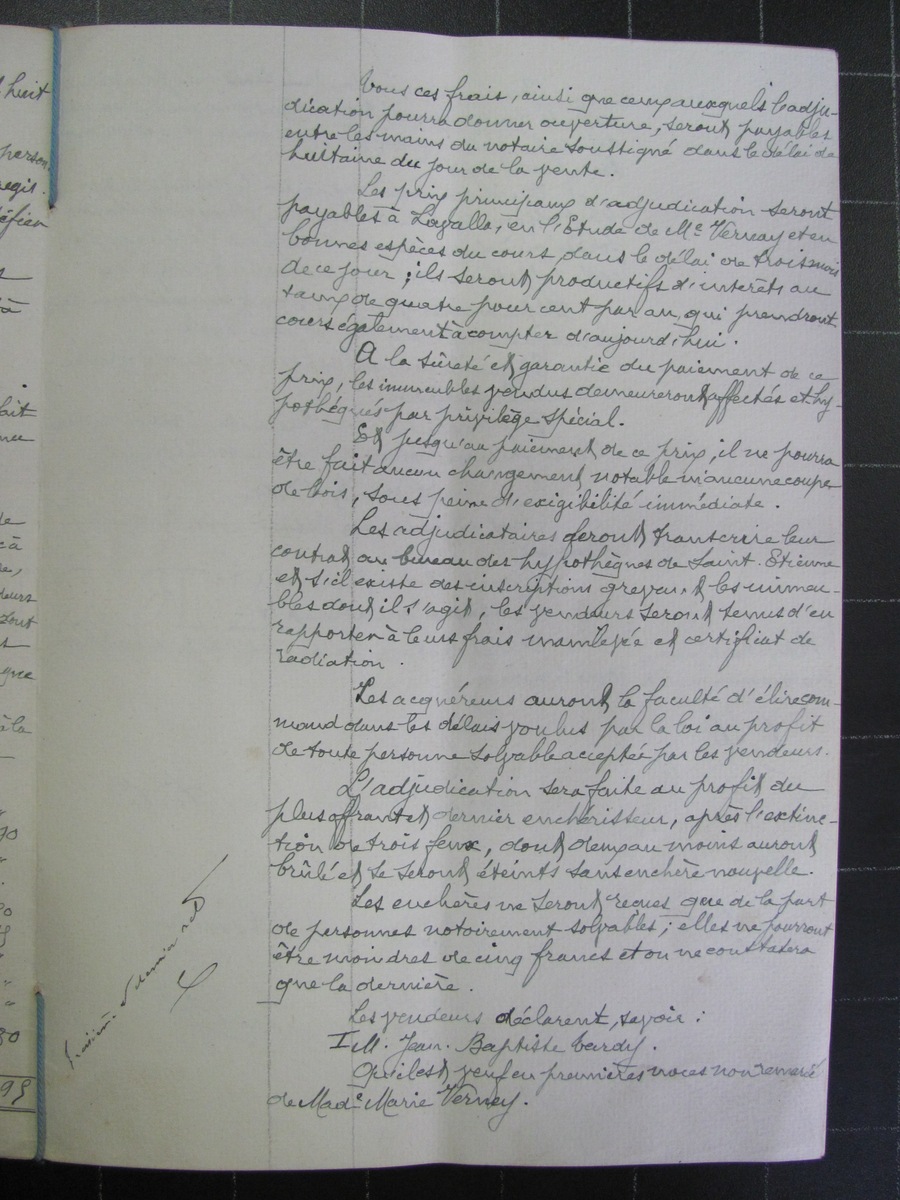 huit
person
regis.
éficier
s
à
.
fait
de
dont
s
que
à la
"
70
"
.
"
"
95
Tous ces frais, ainsi que ceux auxquels l'adju-
dication pourra donner ouverture, seront payables
entre les mains du notaire soussigné dans le délai de
huitaine du jour de la vente.
Les prix principaux d'adjudication seront
payables à Lavalla, en l'Etude de Mc Vernay et en
bonnes espèces du cours dans le délai de trois mois
de ce jour ; ils seront productifs d'intérêts au
taux de quatre pour cent par an, qui prendront
cours également à compter d'aujourd'hui.
A la sûreté et garantie du paiement de ce
prix, les immeubles vendus demeureront affectés et hy-
pothéqués par privilège spécial.
Et jusqu'au paiement de ce prix, il ne pourra
être fait aucun changement notable ni aucune coupe
de bois, sous peine d'exigibilité immédiate.
Les adjudicataires feront transcrire leur
contrat au bureau des hypothèques de Saint-Etienne
et s'il existe des inscriptions grevant les immeu-
bles dont il s'agit, les vendeurs seront tenus d'en
rapporter à leurs frais mainlevée et certificat de
radiation.
Les acquéreurs auront la faculté d'élire com-
mand dans les délais voulus par la loi au profit
de toute personne solvable acceptée par les vendeurs.
L'adjudication sera faite au profit du
plus offrant et dernier enchérisseur, après l'extinc-
tion de trois feux, dont deux au moins auront
brûlé et se seront éteints sans enchère nouvelle.
Les enchères ne seront reçues que de la part
de personnes notoirement solvables ; elles ne pourront
être moindres de cinq francs et on ne constatera
que la dernière.
Les vendeurs déclarent, savoir :
I M. Jean-Baptiste Tardy.
Qu'il est veuf en premières noces non remarié
de Made Marie Verney.